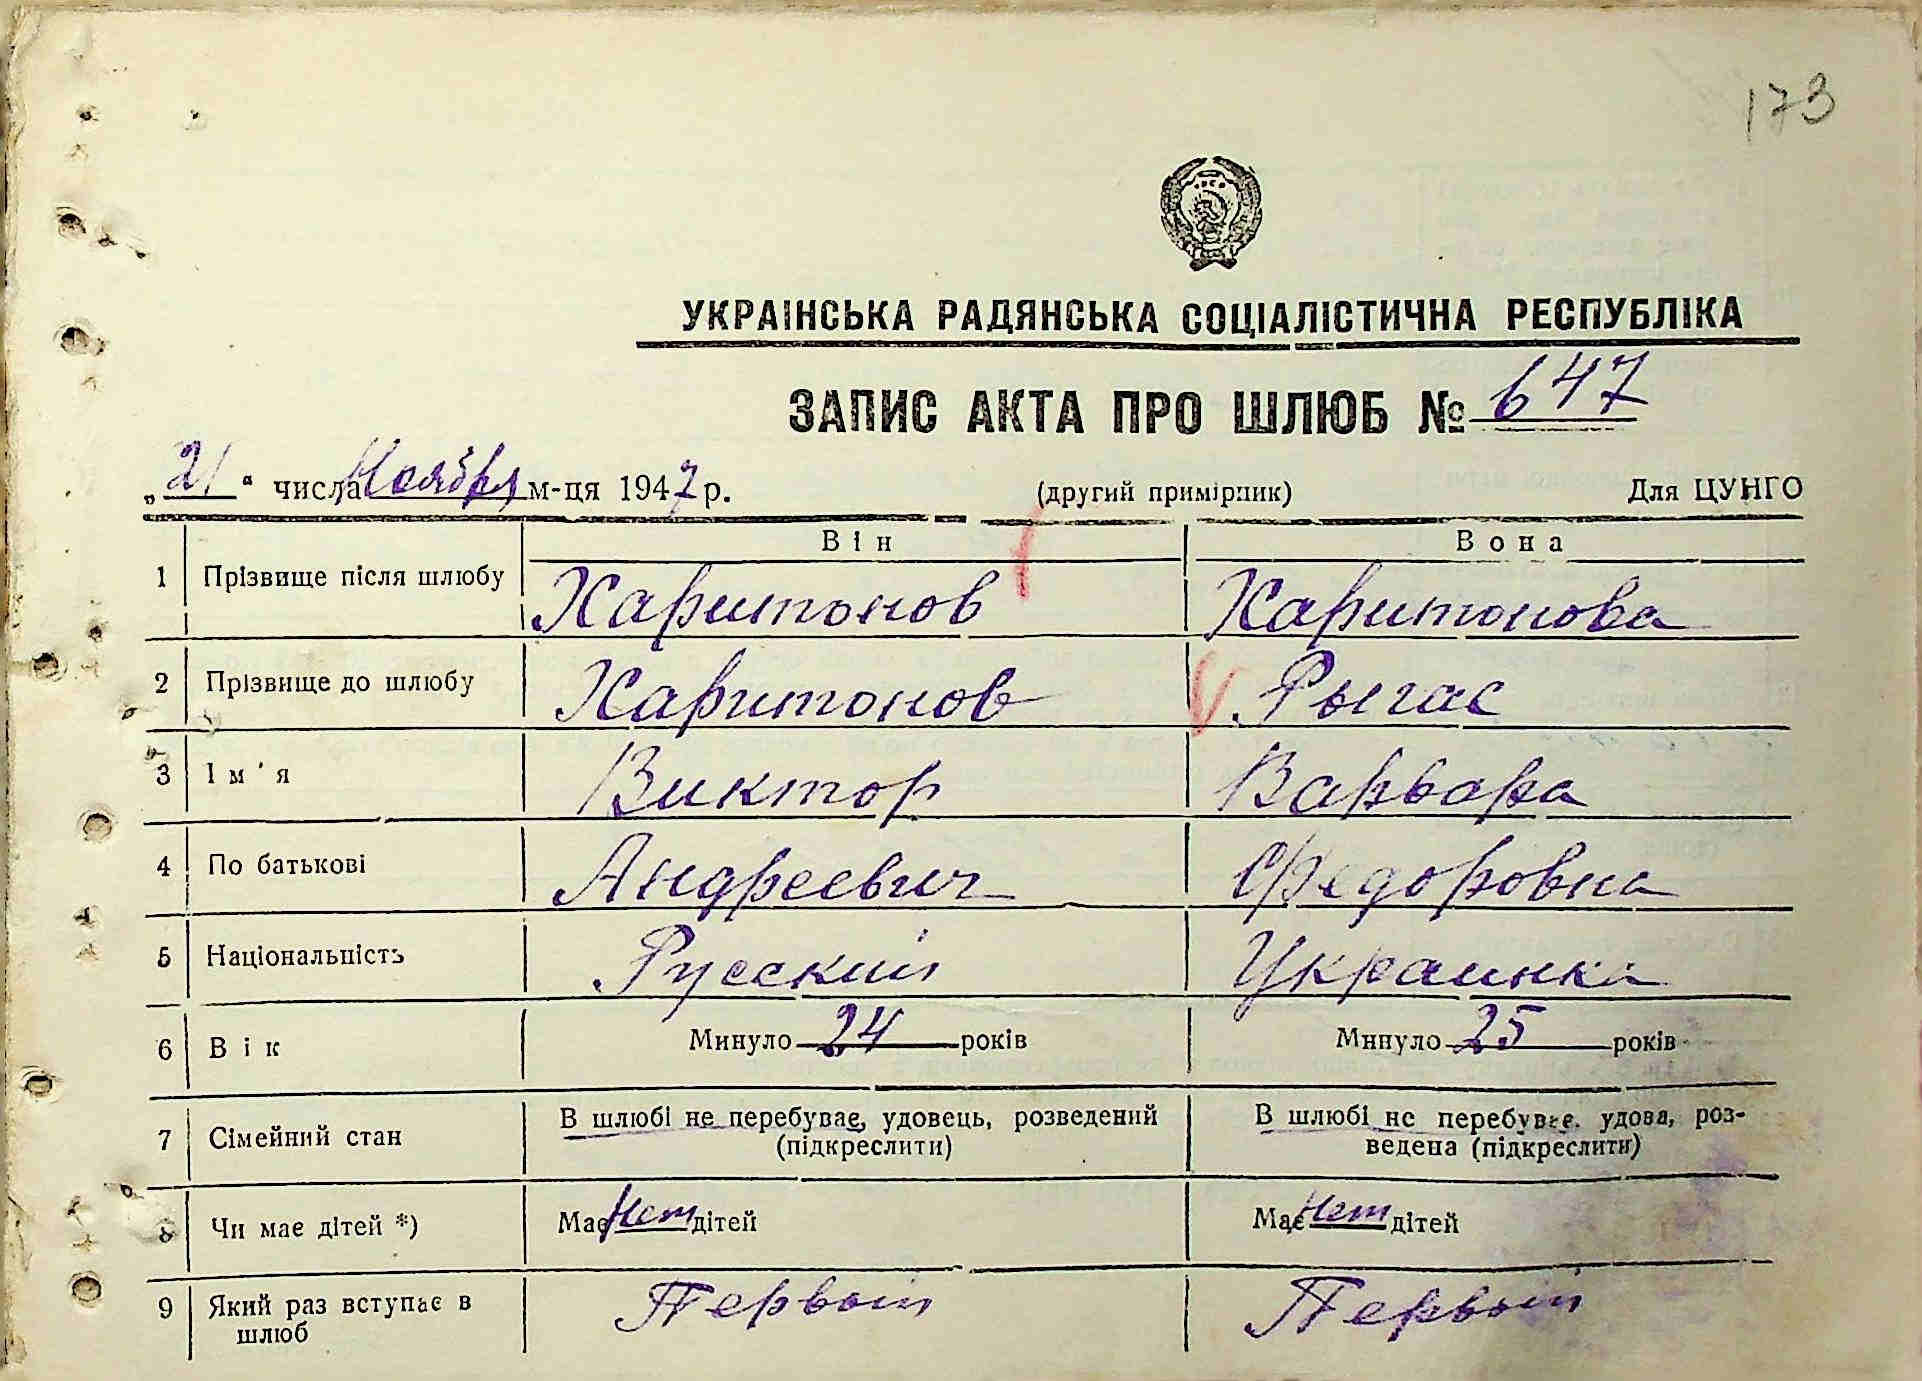 173
УКРАІНСЬКА РАДЯНСЬКА СОЦІАЛІСТИЧНА РЕСПУБЛІКА
ЗАПИС АКТА ПРО ШЛЮБ № 647
„21“ числа Ноября м-ця 1947 р. (другий примірник) Для ЦУНГО
Він Вона
1 Прізвище після шлюбу Харитонов Харитонова
2 Прізвище до шлюбу Харитонов Рыгас
3 Ім'я Виктор Варвара
4 По батькові Андреевич Федоровна
5 Національність Русский Украинка
6 Вік Минуло 24 років Минуло 25 років
7 Сімейний стан В шлюбі не перебуває, удовець, розведений В шлюбі не перебуває, удова, роз-
(підкреслити) ведена (підкреслити)
8 Чи має дітей *) Має Нет дітей Має Нет дітей
9 Який раз вступає в Первый Первый
шлюб